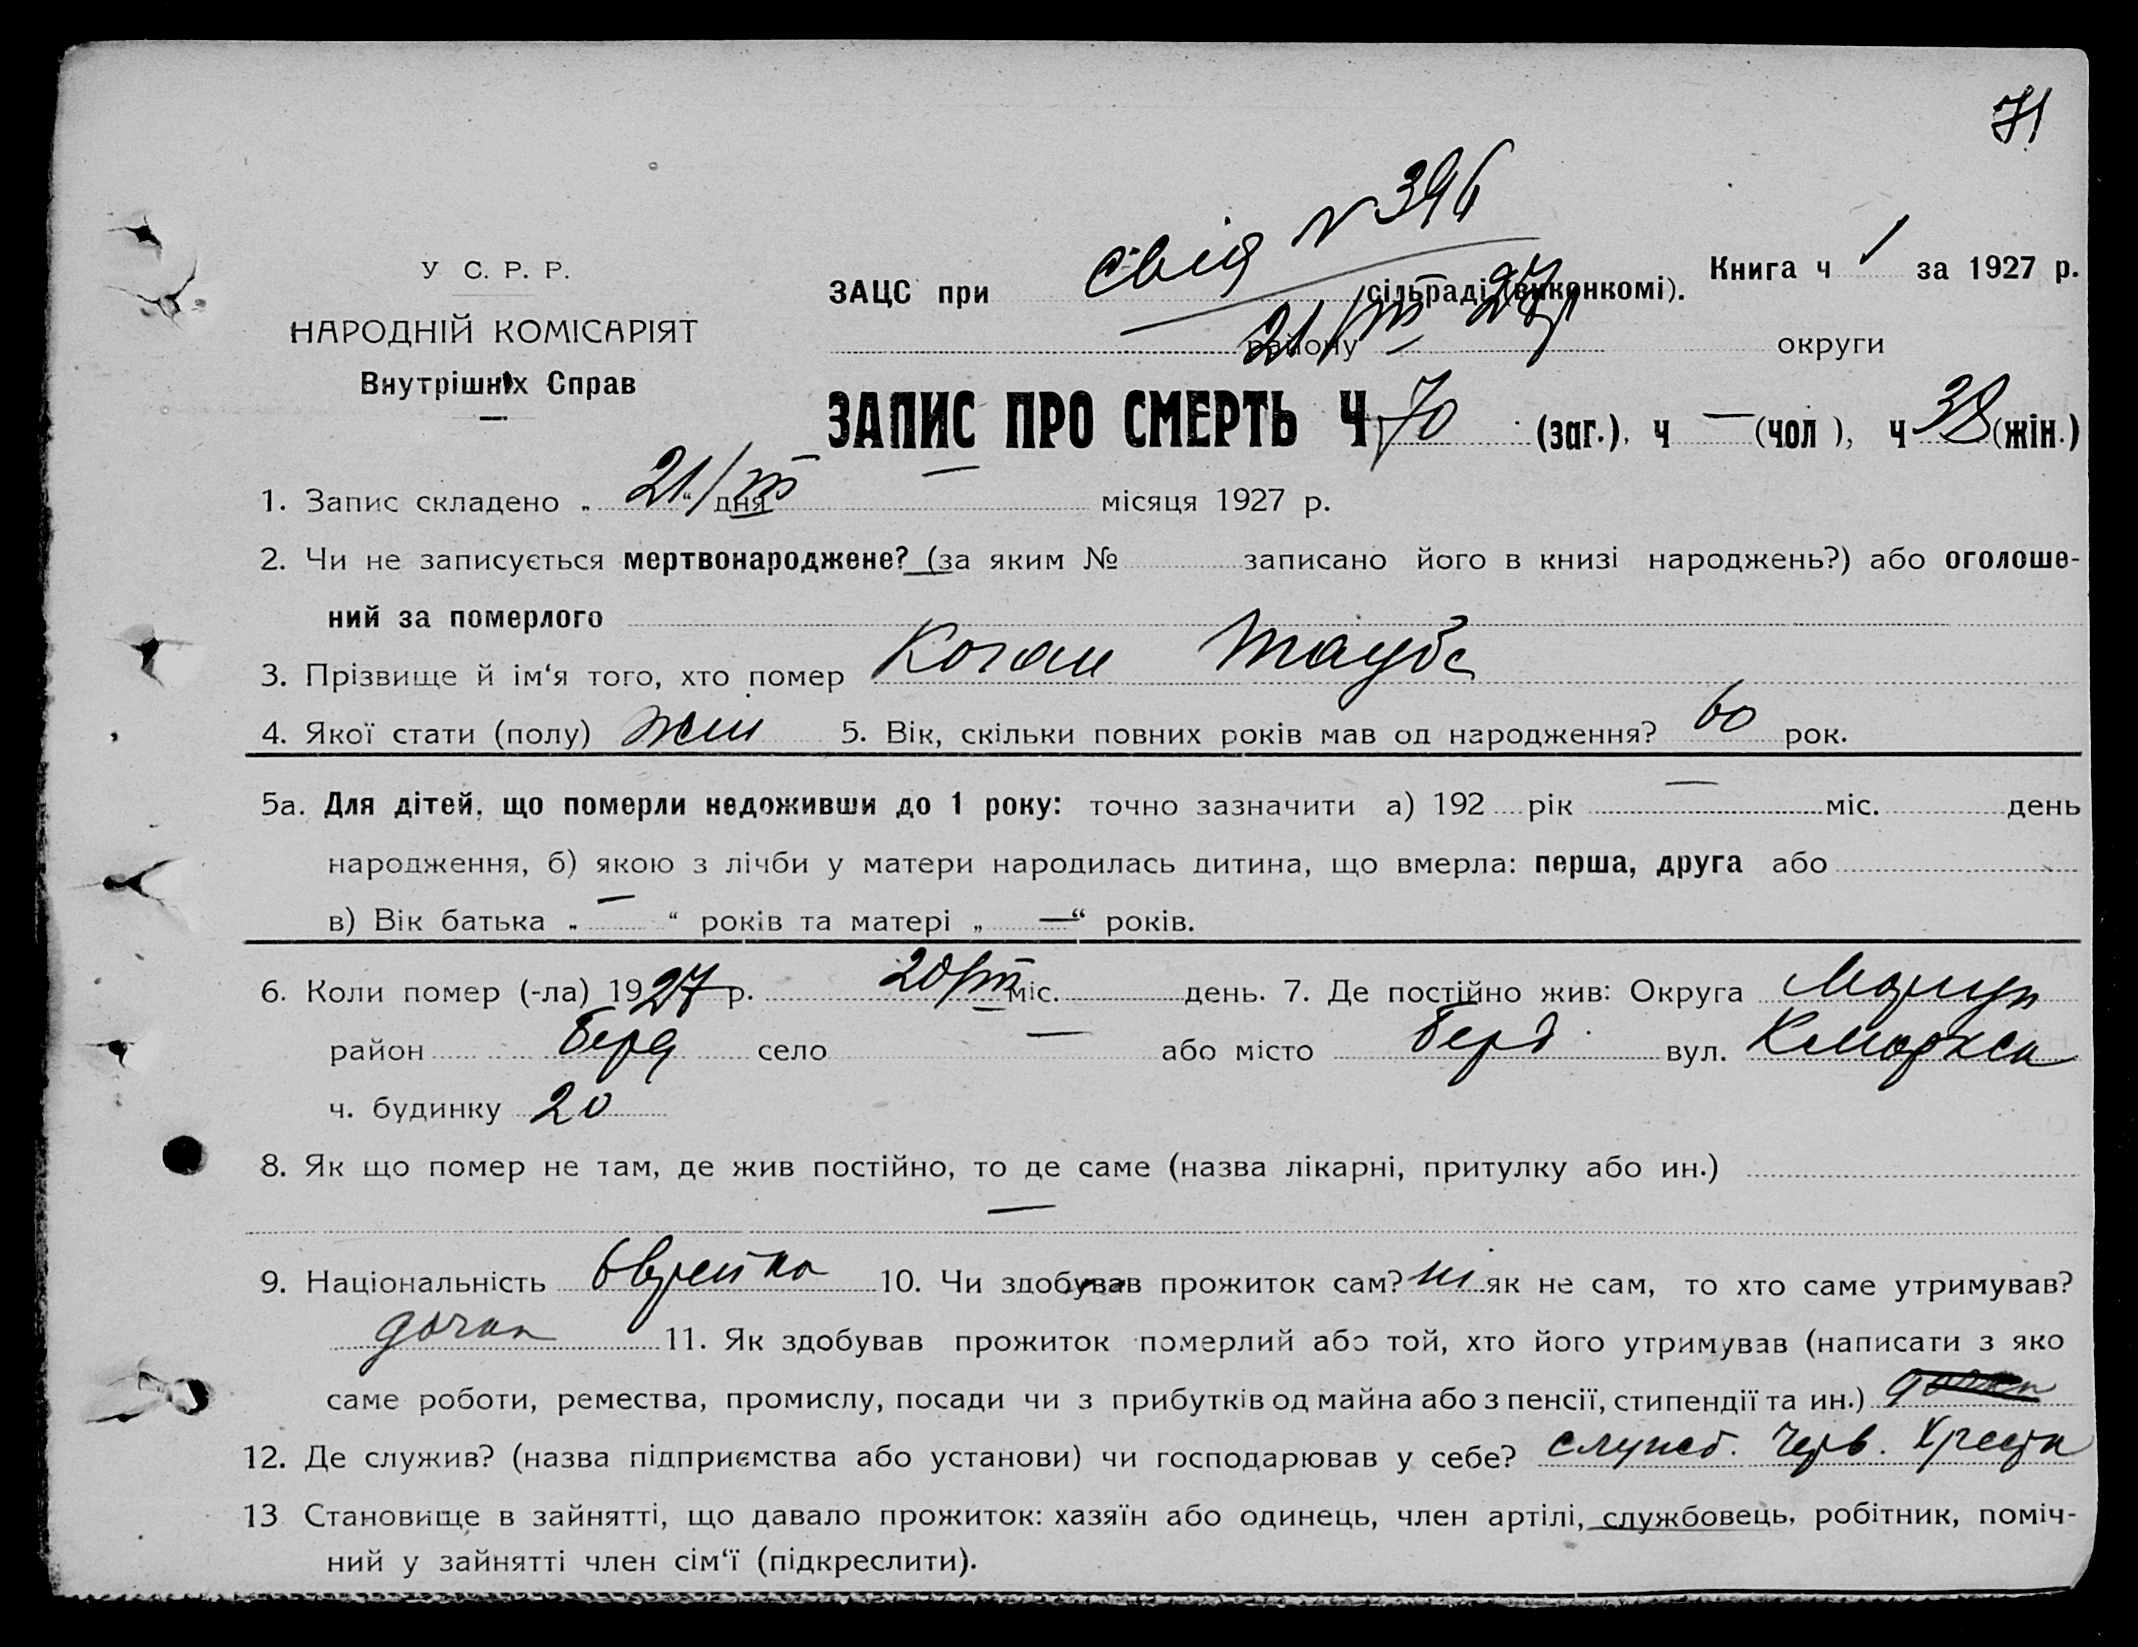 71
свід № 396
У С. Р. Р.
НАРОДНІЙ КОМІСАРІЯТ
Внутрішніх Справ
ЗАЦС при сільраді (виконкомі).
Книга ч 1 за 1927 р.
21/III 27 р
району округи
ЗАПИС ПРО СМЕРТЬ Ч 70 (заг.), ч — (чол), ч 38 (жін.)
1. Запис складено „ 21/III “ дня — місяця 1927 р.
2. Чи не записується мертвонароджене? (за яким № записано його в книзі народжень?) або оголоше-
ний за померлого
3. Прізвище й ім‘я того, хто помер Коган Тауба
4. Якої стати (полу) жін 5. Вік, скільки повних років мав од народження? 60 рок.
5а. Для дітей, що померли недоживши до 1 року: точно зазначити а) 192 рік — міс. день
народження, б) якою з лічби у матери народилась дитина, що вмерла: перша, друга або
в) Вік батька „ — “ років та матері „ — “ років.
6. Коли помер (-ла) 1927 р. 20/III міс. день. 7. Де постійно жив: Округа Маріуп
район Берд село — або місто Берд вул. К Маркса
ч. будинку 20
8. Як що помер не там, де жив постійно, то де саме (назва лікарні, притулку або ин.)
—
9. Національність Єврейка 10. Чи здобував прожиток сам? ні як не сам, то хто саме утримував?
дочка 11. Як здобував прожиток померлий або той, хто його утримував (написати з яко
саме роботи, ремества, промислу, посади чи з прибутків од майна або з пенсії, стипендії та ин.) дочка
12. Де служив? (назва підприємства або установи) чи господарював у себе? служб. Черв. Хреста
13 Становище в зайнятті, що давало прожиток: хазяїн або одинець, член артілі, службовець, робітник, поміч-
ний у зайнятті член сім‘ї (підкреслити).